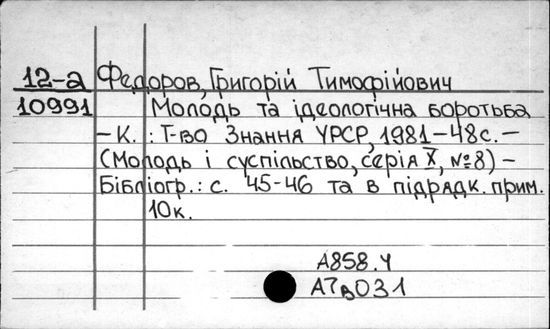 12-а Федоров, Григорій Тимофійович
10991 Молодь та ідеологічна боротьба
– К. : Т-во Знання УРСР, 1981 – 48 с. –
(Молодь і суспільство, серія X, №8) –
Бібліогр.: с. 45-46 та в підрядк. прим.
10 к.
А858.4
А7в031